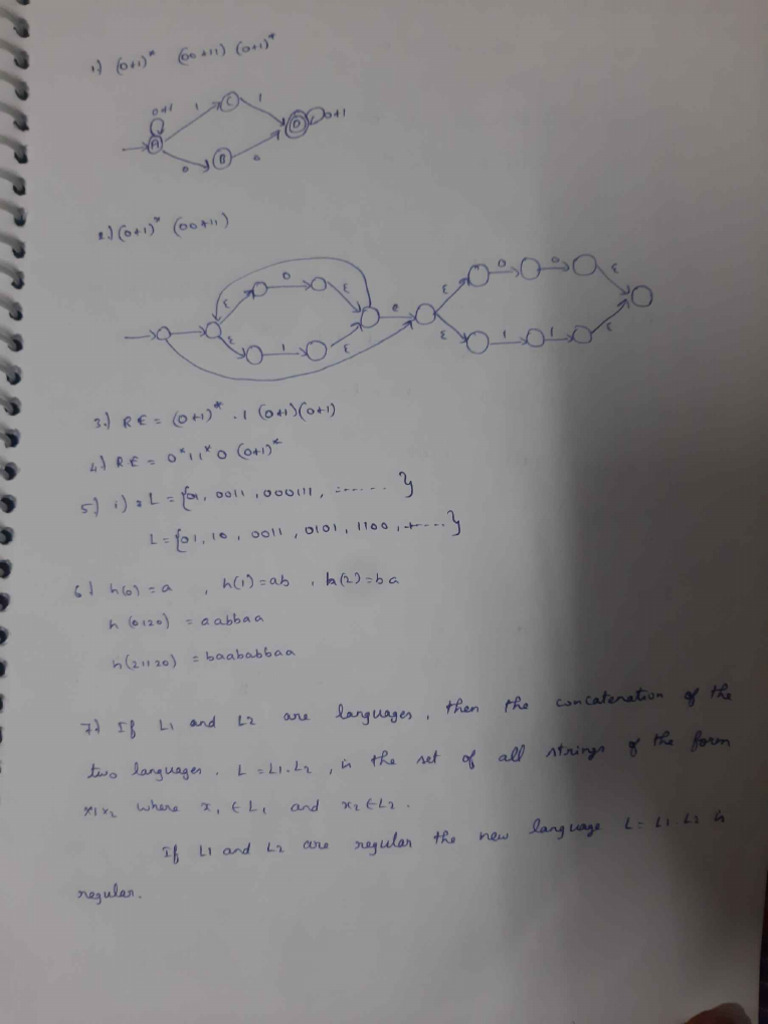 1) (0+1)* (00+11) (0+1)*
0+1 1 C 1
A D 0+1
0 B 0
2) (0+1)* (00+11)
ε 0 ε ε 0 0 ε
ε 1 ε e ε 1 1 ε
3) RE = (0+1)* . 1 (0+1)(0+1)
4) RE = 0*11*0 (0+1)*
5) i) L = {01, 0011, 000111, ........}
L = {01, 10, 0011, 0101, 1100, ......}
6) h(0) = a , h(1) = ab , h(2) = ba
h(0120) = aabbaa
h(21120) = baababbaa
7) If L1 and L2 are languages, then the concatenation of the
two languages. L = L1.L2 , is the set of all strings of the form
x1x2 where x1 ∈ L1 and x2 ∈ L2.
If L1 and L2 are regular the new language L = L1.L2 is
regular.